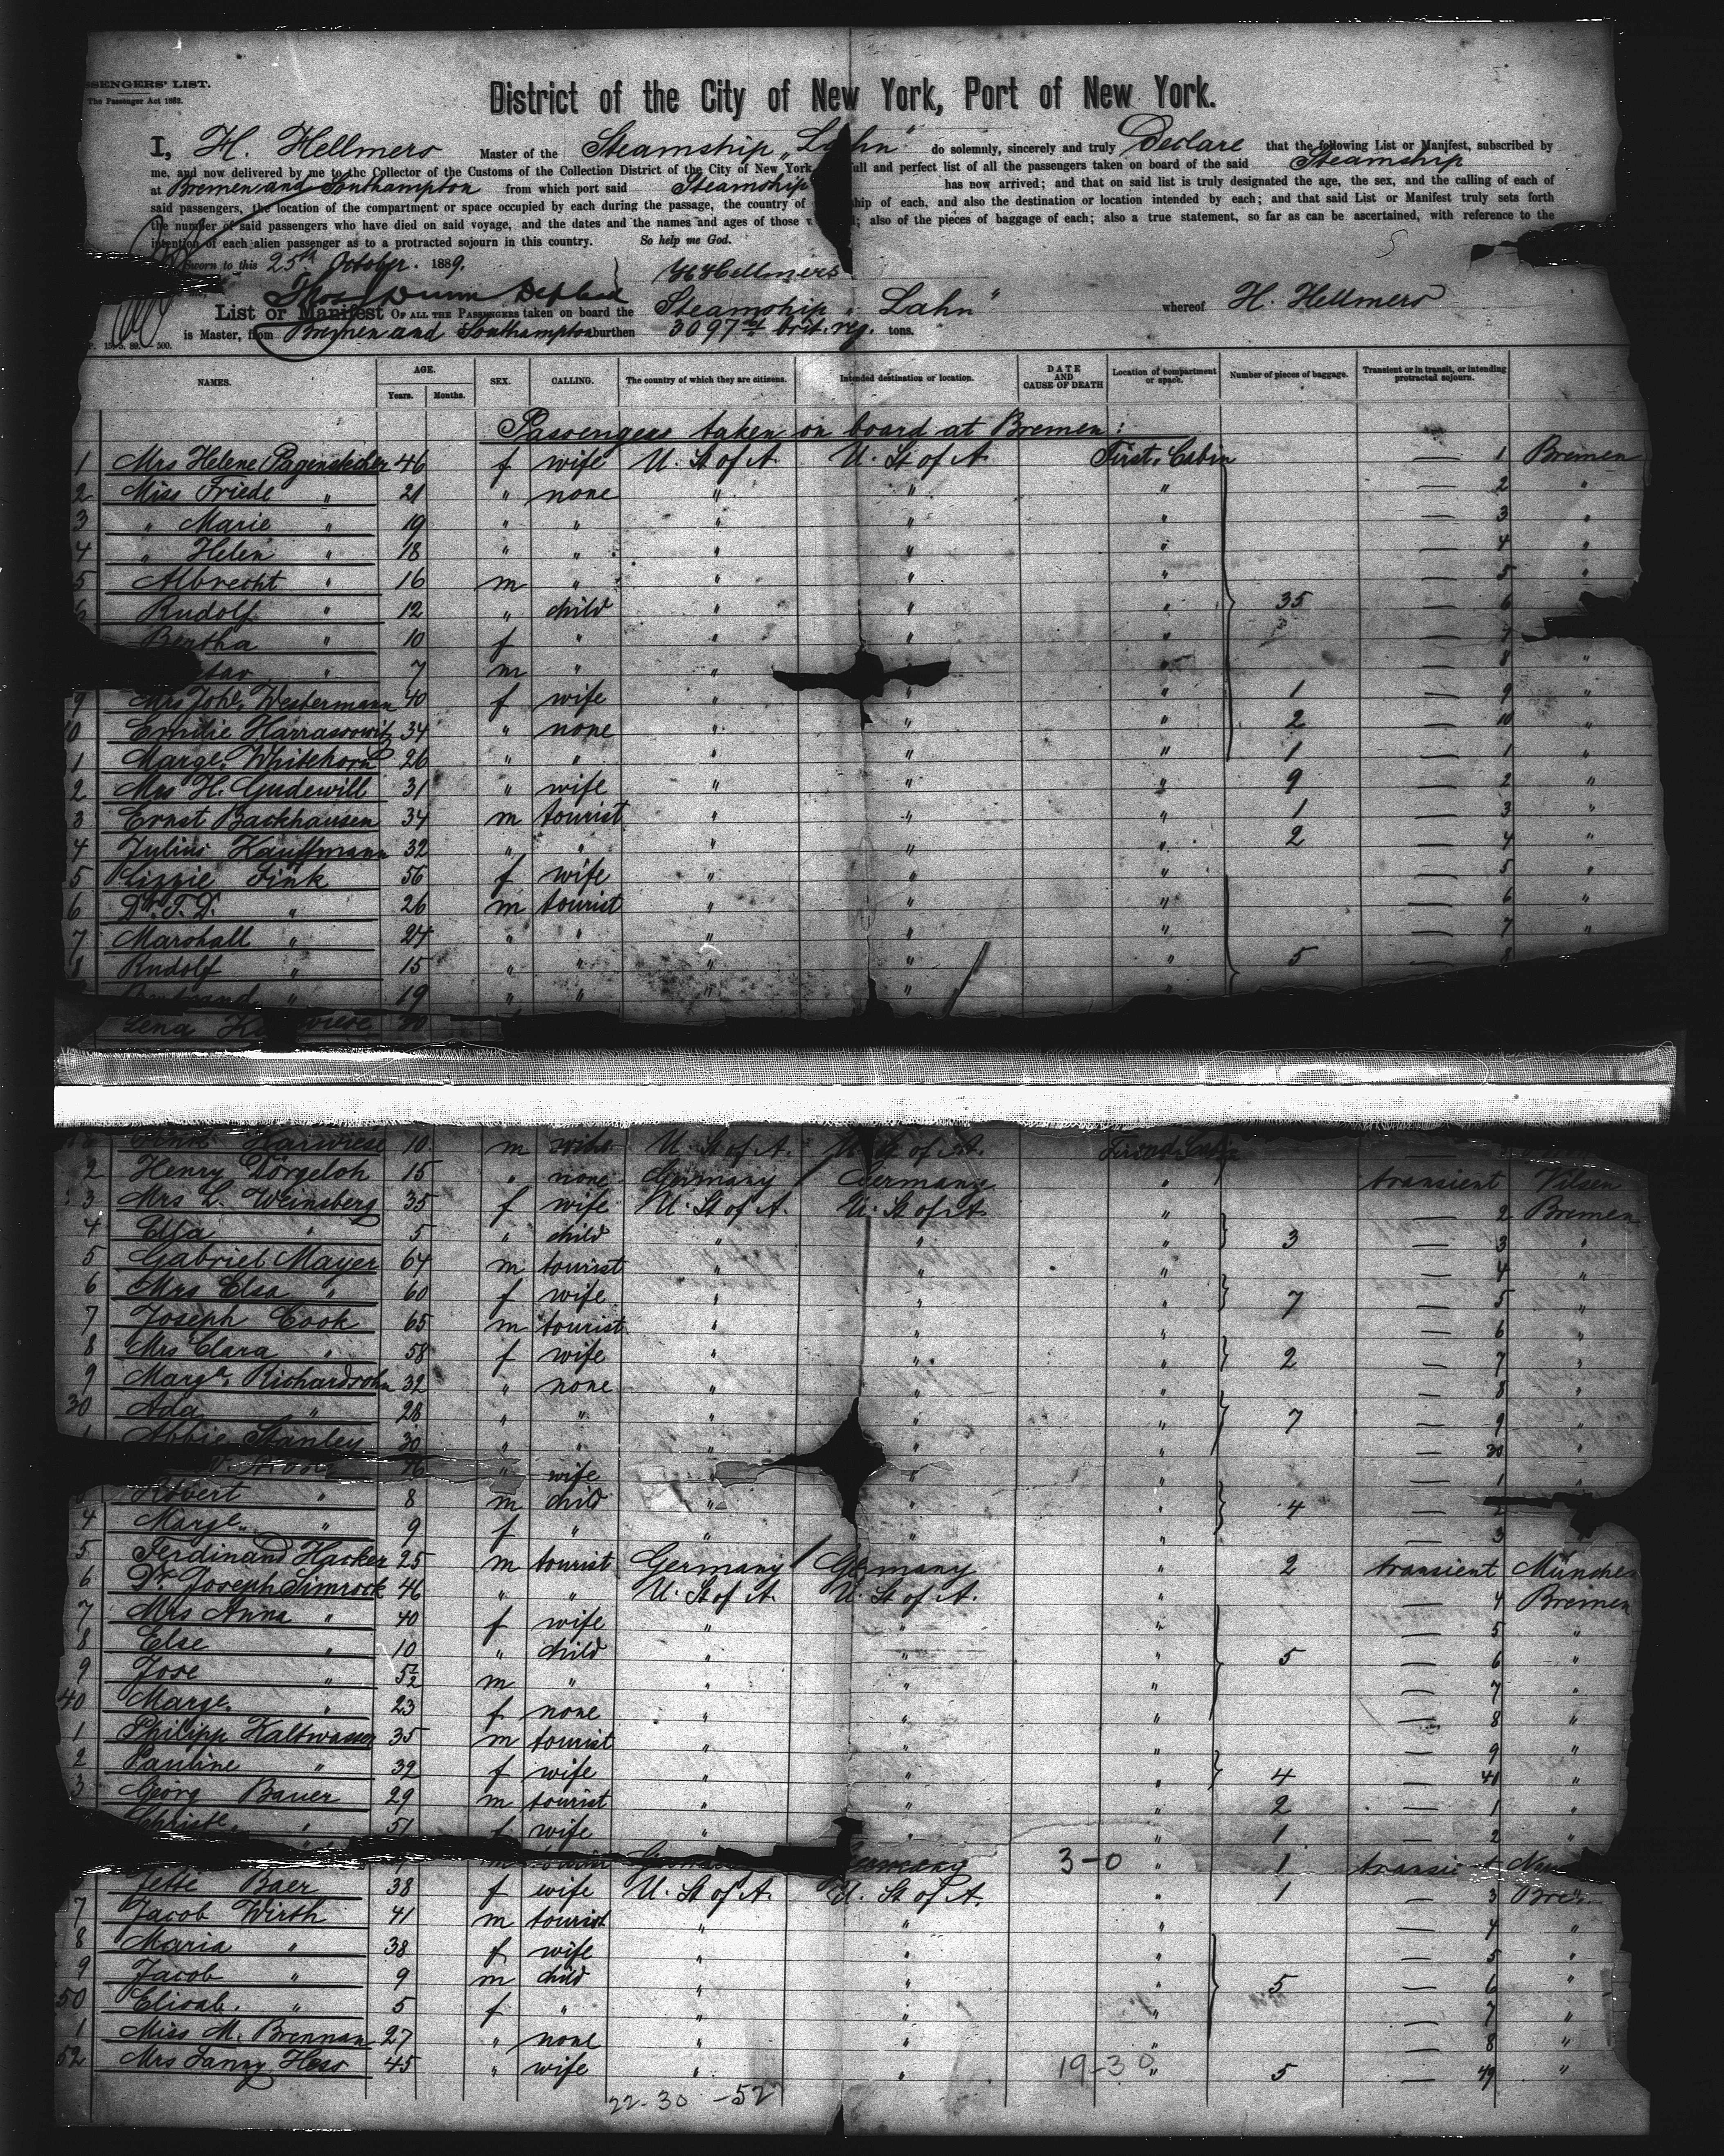 SSENGERS' LIST.
The Passenger Act 1882.
District of the City of New York, Port of New York.
I, H. Hellmers Master of the Steamship „Lahn" do solemnly, sincerely and truly Declare that the following List or Manifest, subscribed by
me, and now delivered by me to the Collector of the Customs of the Collection District of the City of New York full and perfect list of all the passengers taken on board of the said Steamship
at Bremen and Southampton from which port said Steamship has now arrived; and that on said list is truly designated the age, the sex, and the calling of each of
said passengers, the location of the compartment or space occupied by each during the passage, the country of ship of each, and also the destination or location intended by each; and that said List or Manifest truly sets forth
the number of said passengers who have died on said voyage, and the dates and the names and ages of those ; also of the pieces of baggage of each; also a true statement, so far as can be ascertained, with reference to the
intention of each alien passenger as to a protracted sojourn in this country. So help me God.
Sworn to this 25th October. 1889. H Hellmers
Thos Dunn
List or Manifest OF ALL THE PASSENGERS taken on board the Steamship „Lahn" whereof H. Hellmers
is Master, from Bremen and Southampton burthen 3097 brit. reg. tons.
NAMES. AGE. Years. Months. SEX. CALLING. The country of which they are citizens. Intended destination or location. DATE AND CAUSE OF DEATH Location of compartment or space. Number of pieces of baggage. Transient or in transit, or intending protracted sojourn.
Passengers taken on board at Bremen:
1 Mrs Helene Pagenstecher 46 f wife U. St of A. U. St of A. First Cabin — 1 Bremen
2 Miss Friede " 21 " none " " " — 2 "
3 " Marie " 19 " " " " " — 3 "
4 " Helen " 18 " " " " " — 4 "
5 Albrecht " 16 m " " " " — 5 "
6 Rudolf " 12 " child " " " 35 — 6 "
Bertha " 10 f " " " " — 7
" 7 m " " " — 8 "
9 Mrs Johe Westermann 40 f wife " " " 1 — 9 "
10 Emilie Harrassowitz 34 " none " " " 2 — 10 "
1 Marge. Whitehorn 26 " " " " " 1 — 1 "
2 Mrs H. Gudewill 31 " wife " " " 9 — 2 "
3 Ernst Backhausen 34 m tourist " " " 1 — 3 "
4 Julius Kauffmann 32 " " " " " 2 — 4 "
5 Lizzie Fink 56 f wife " " " — 5 "
6 Dr. T. D. " 26 m tourist " " " — 6 "
7 Marshall " 24 " " " " " — 7 "
8 Rudolf " 15 " " " " " 5 — 8
" 19 " " " " "
Lena 30
10 m U. St of A. U. St of A.
2 Henry Dörgeloh 15 " none Germany Germany " transient Vilsen
3 Mrs L. Weinsberg 35 f wife U. St of A. U. St of A. " — 2 Bremen
4 Elsa " 5 " child " " " 3 — 3 "
5 Gabriel Mayer 64 m tourist " " " — 4 "
6 Mrs Elsa " 60 f wife " " " 7 — 5 "
7 Joseph Cook 65 m tourist " " " — 6 "
8 Mrs Clara " 58 f wife " " " 2 — 7 "
9 Marge. Richardsohn 32 " none " " " — 8 "
30 Ada " 28 " " " " " 7 — 9 "
1 Abbie Stanley 30 " " " " " — 30 "
" wife " " " — 1 "
Robert " 8 m child " " " 4 — 2
4 Marge. " 9 f " " " " — 3
5 Ferdinand Hacker 25 m tourist Germany Germany " 2 transient München
6 Dr. Joseph Simrock 46 " " U. St of A. U. St of A. " — 4 Bremen
7 Mrs Anna " 40 f wife " " " — 5 "
8 Else " 10 " child " " " 5 — 6 "
9 Jose " 5 1/2 m " " " " — 7 "
40 Marge. " 23 f none " " " — 8 "
1 Philipp Kaltwasser 35 m tourist " " " — 9 "
2 Pauline " 32 f wife " " " 4 — 41 "
3 Georg Bauer 29 m tourist " " " 2 — 1 "
Christe. " 51 f wife " " " 1 — 2 "
m Germany 3-0 " 1
Jette Baer 38 f wife U. St of A. U. St of A. " 1 — 3
7 Jacob Wirth 41 m tourist " " " — 4 "
8 Maria " 38 f wife " " " — 5 "
9 Jacob " 9 m child " " " 5 — 6 "
50 Elisab. " 5 f " " " " — 7 "
1 Miss M. Brennan 27 " none " " " — 8 "
52 Mrs Fanny Hess 45 " wife " " 19-30 " 5 — 49 "
22-30 -52